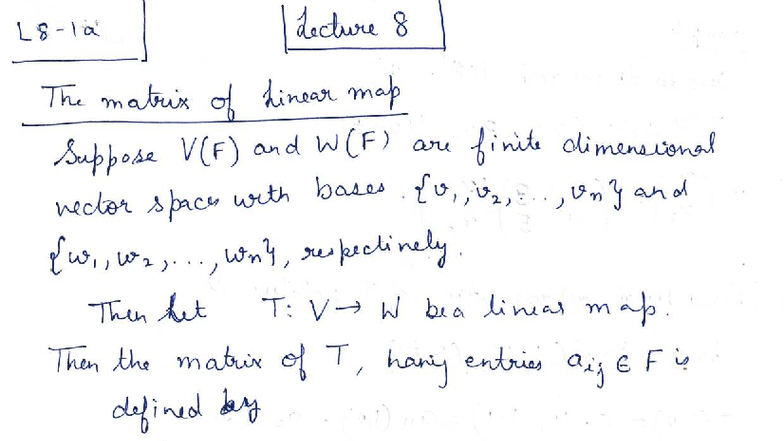 L8-1a
Lecture 8
The matrix of linear map
Suppose V(F) and W(F) are finite dimensional
vector spaces with bases {v1, v2, ..., vn} and
{w1, w2, ..., wn}, respectively.
Then let T: V → W be a linear map.
Then the matrix of T, having entries aij ∈ F is
defined by